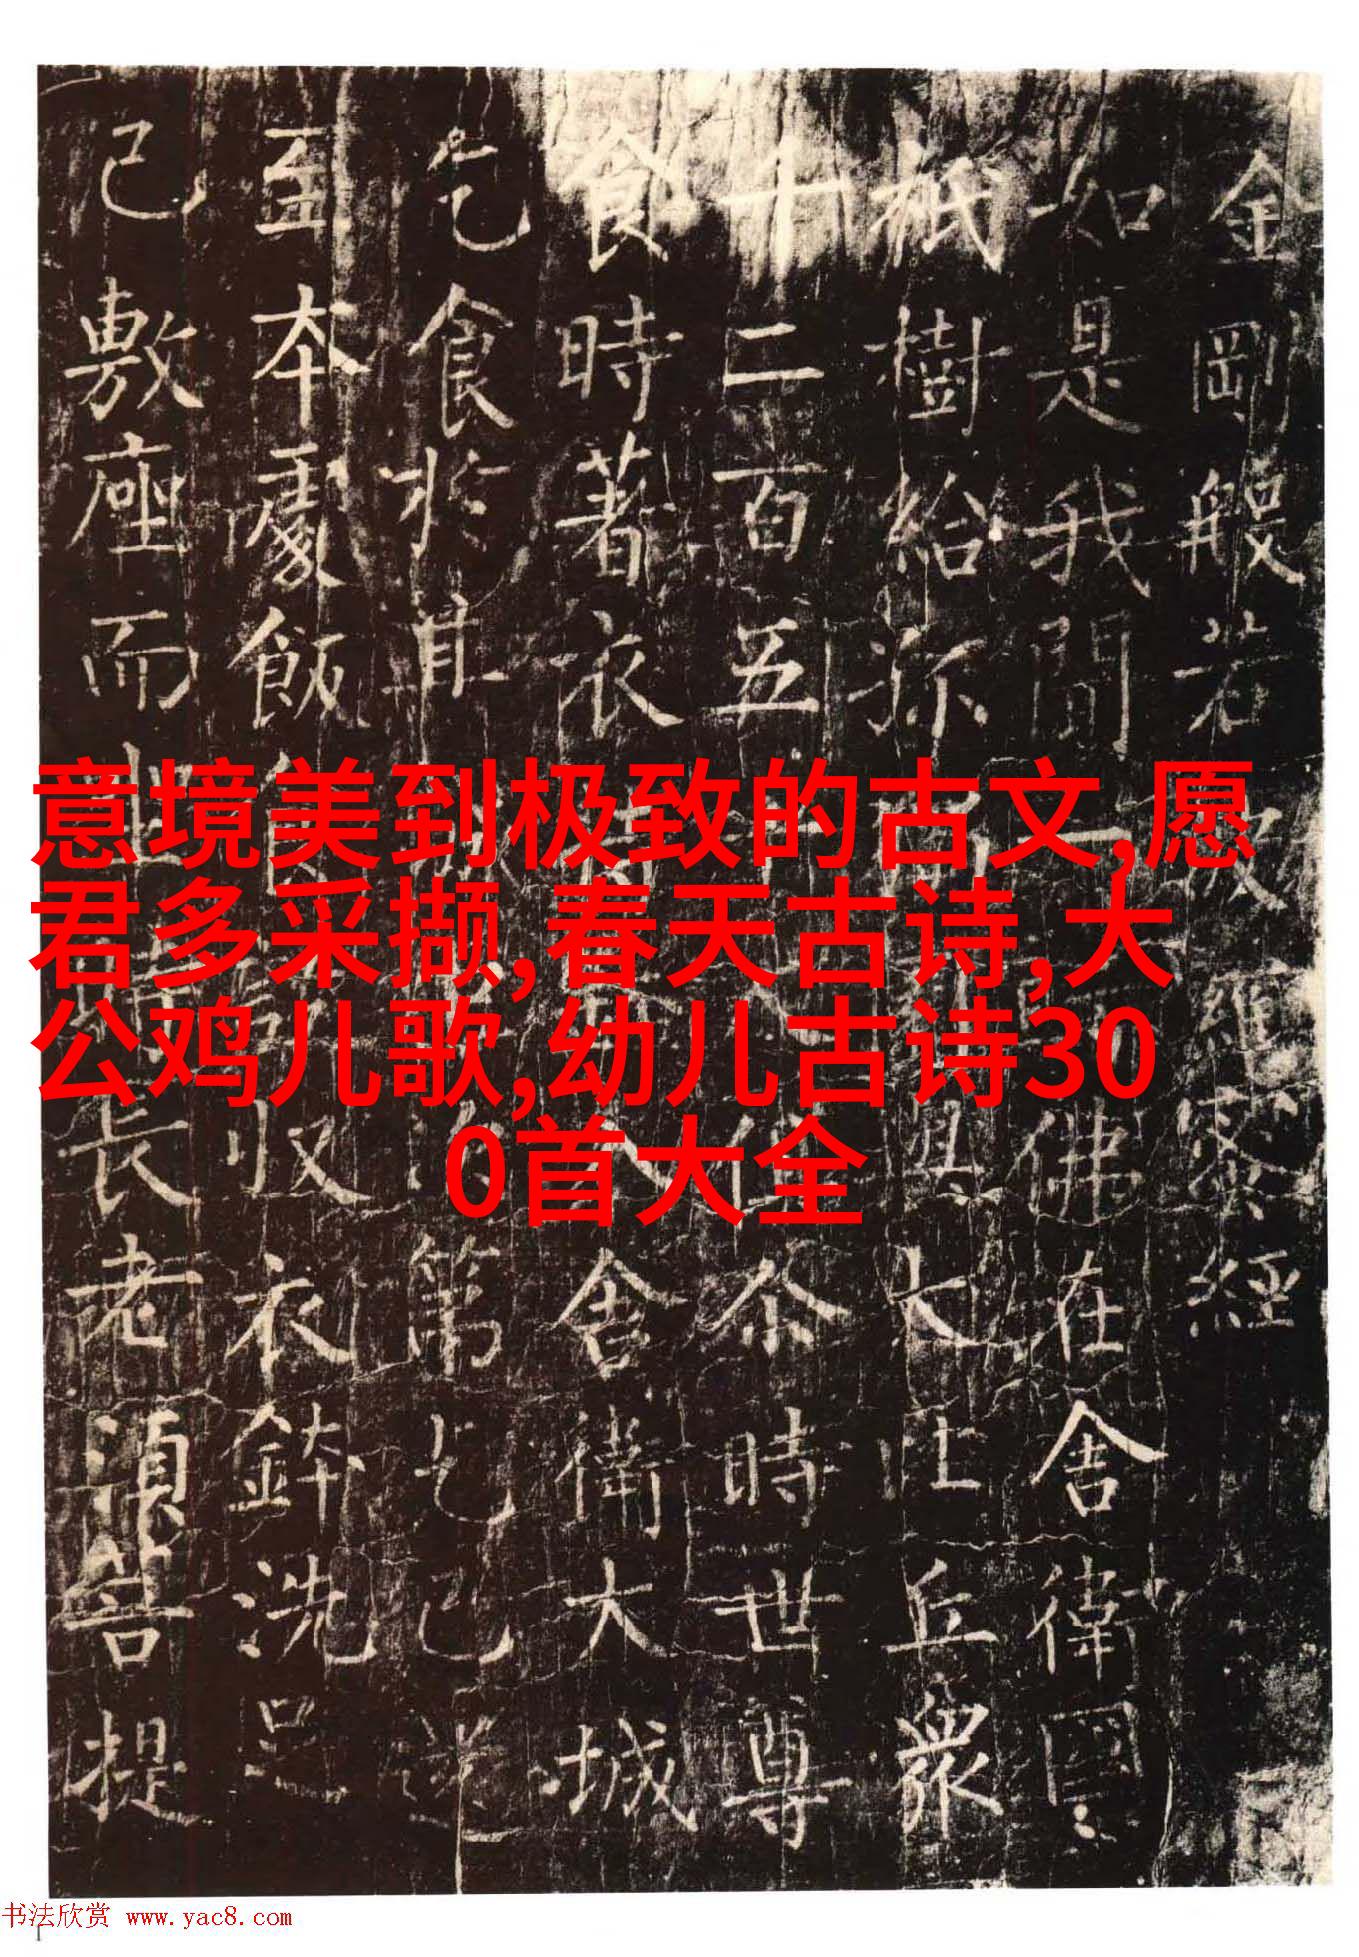 金剛般若波羅蜜經
如是我聞一佛在舍衛國
祇樹給孤大比丘眾
千二百五十尒時世尊
食時著衣入舍衛大城
乞食於其第乞已還
至本處飯食收衣鉢洗足
已敷座而坐長老須菩提
意境美到极致的古文,愿
君多采撷,春天古诗,大
公鸡儿歌,幼儿古诗30
0首大全
书法欣赏 www.yac8.com